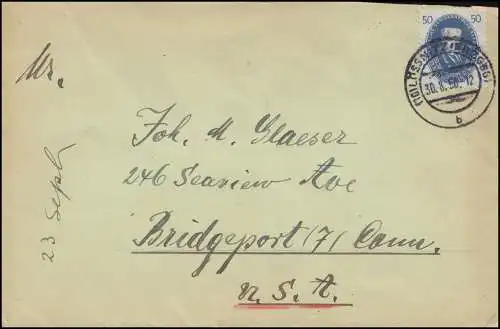 50 50
30. 8. 50. 12
b
Mr.
Joh. M. Glaeser
246 Seaview Ave
Bridgeport (7) Conn.
U. S. A.
23 Sept